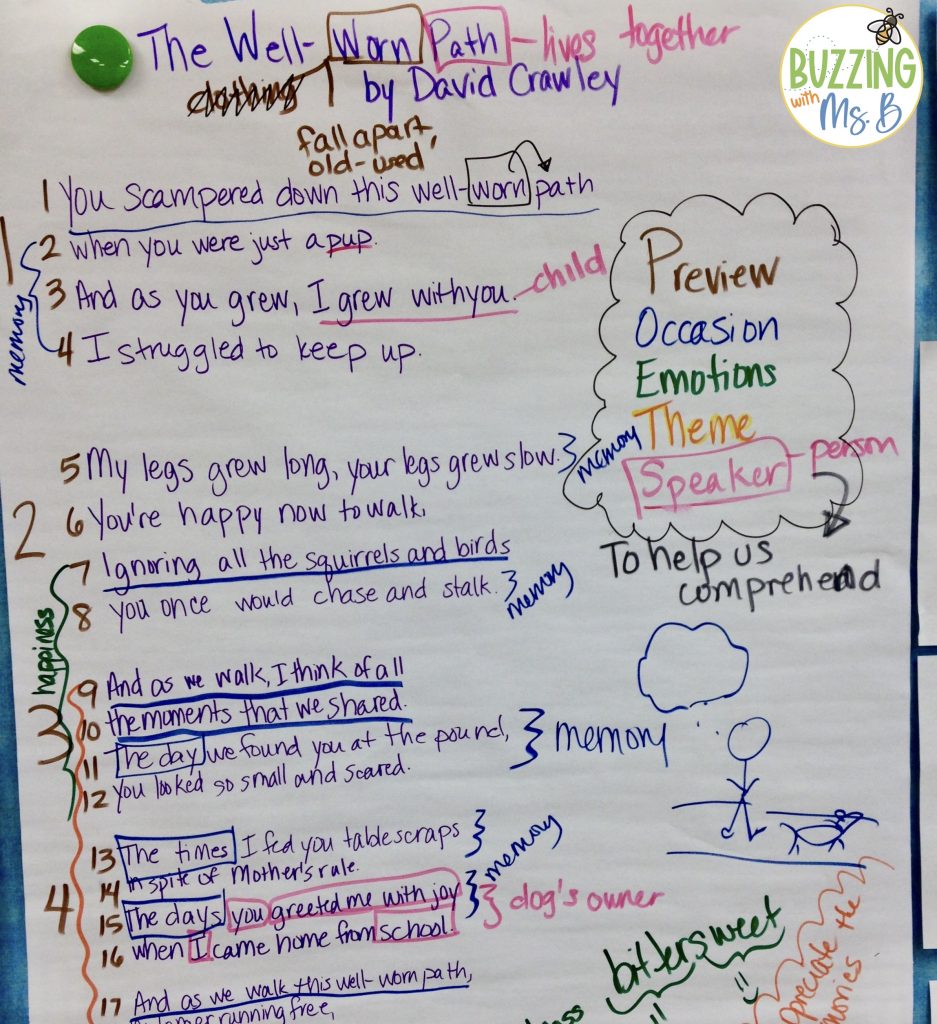 The Well-Worn Path - lives together
clothing
by David Crawley
fall apart,
old-used
BUZZING
with
Ms. B
1 You scampered down this well-worn path
1
2 when you were just a pup.
3 And as you grew, I grew with you. child
4 I struggled to keep up.
memory
Preview
Occasion
Emotions
Theme
Speaker - person
To help us
comprehend
5 My legs grew long, your legs grew slow. } memory
2
6 You're happy now to walk,
7 Ignoring all the squirrels and birds
8 you once would chase and stalk. } memory
happiness
3
9 And as we walk, I think of all
10 the moments that we shared.
11 The day we found you at the pound, } memory
12 You looked so small and scared.
4
13 The times I fed you table scraps } memory
14 in spite of Mother's rule.
15 The days you greeted me with joy } dog's owner
16 when I came home from school.
17 And as we walk this well-worn path,
running free,
bittersweet
the